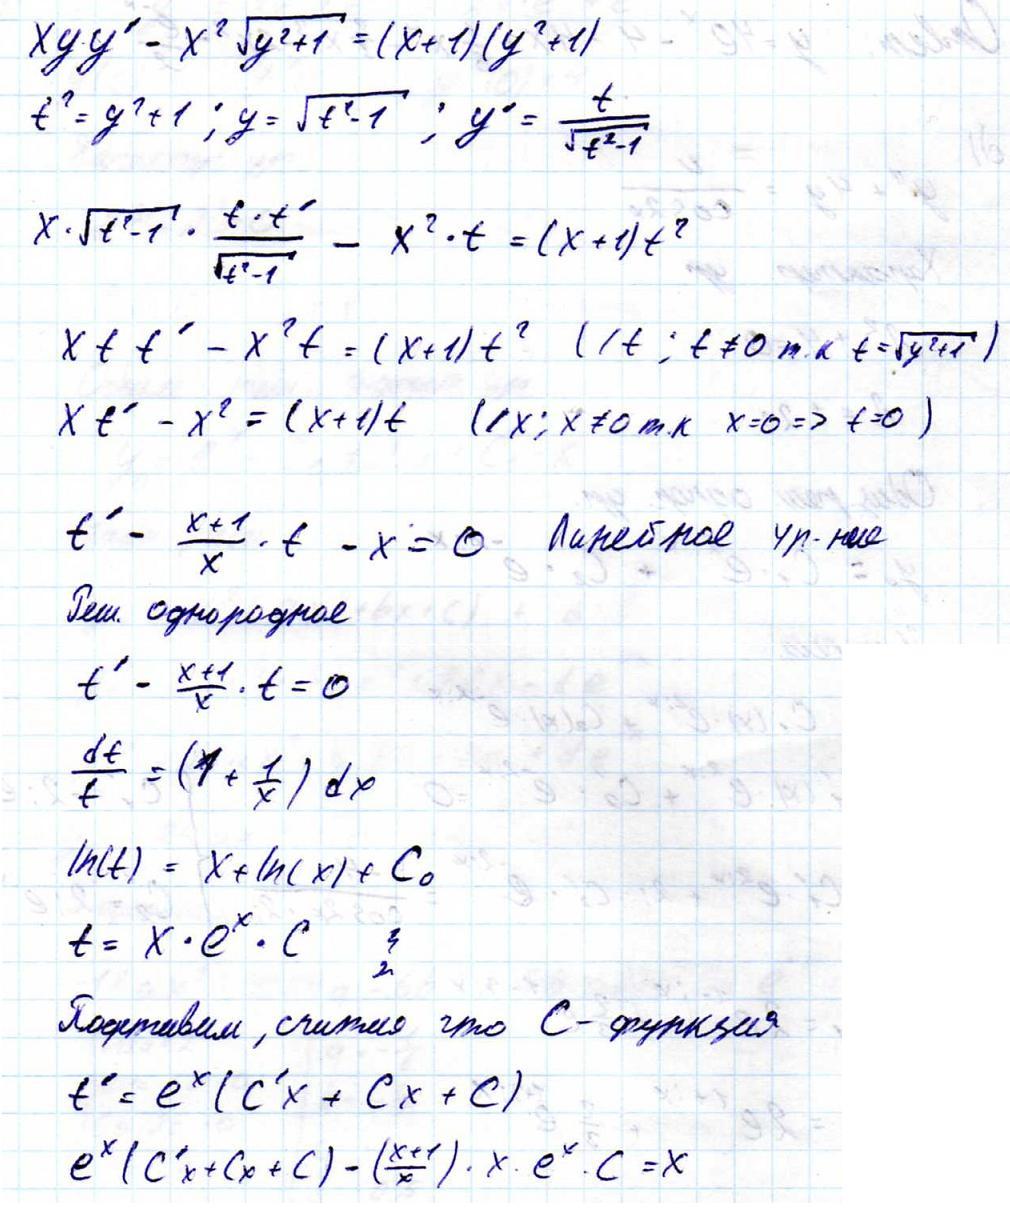 xyy' - x²√(y²+1) = (x+1)(y²+1)
t² = y²+1 ; y = √(t²-1) ; y' = t/√(t²-1)
x·√(t²-1) · (t·t')/√(t²-1) - x²·t = (x+1)t²
x t t' - x²t = (x+1)t² (/t ; t≠0 т.к t=√(y²+1))
x t' - x² = (x+1)t (/x ; x≠0 т.к x=0 => t=0)
t' - (x+1)/x · t - x = 0 Линейное ур-ние
Реш. однородное
t' - (x+1)/x · t = 0
dt/t = (1 + 1/x) dx
ln(t) = x + ln(x) + C₀
t = x · eˣ · C
Подставим, считая что C - функция
t' = eˣ(C'x + Cx + C)
eˣ(C'x + Cx + C) - ((x+1)/x) · x · eˣ · C = x